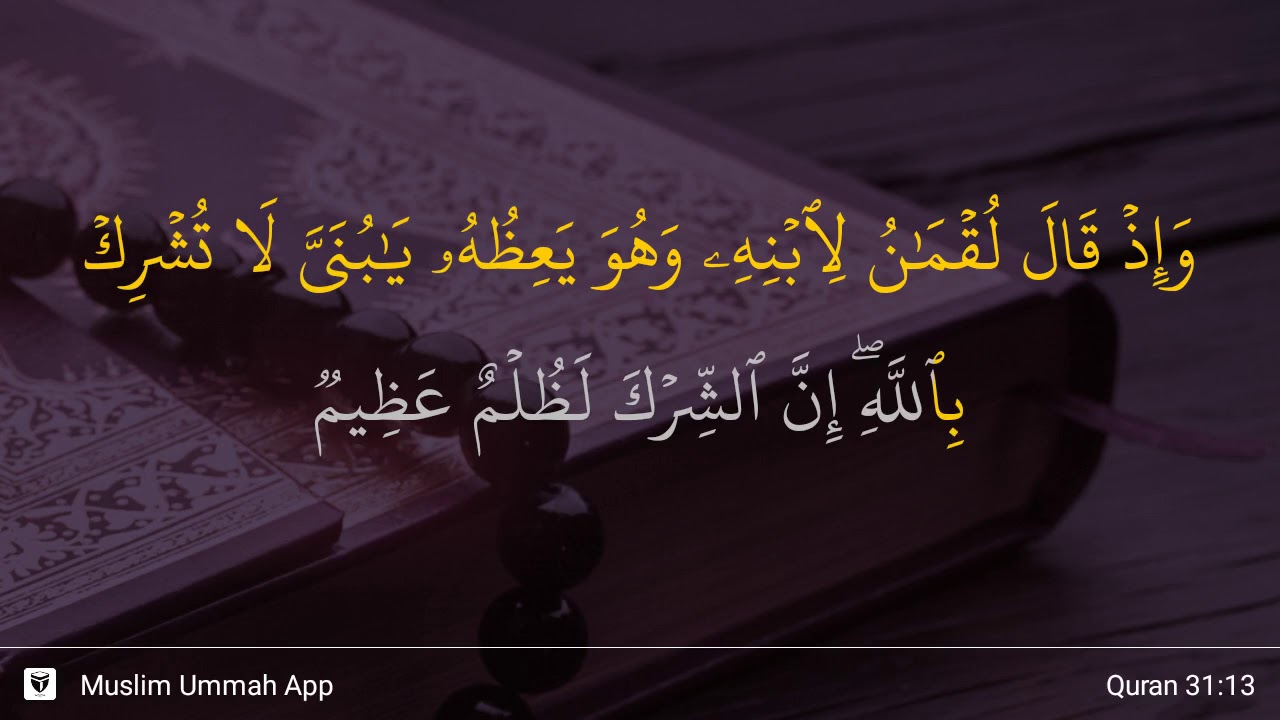 وَإِذۡ قَالَ لُقۡمَٰنُ لِٱبۡنِهِۦ وَهُوَ يَعِظُهُۥ يَٰبُنَيَّ لَا تُشۡرِكۡ
بِٱللَّهِۖ إِنَّ ٱلشِّرۡكَ لَظُلۡمٌ عَظِيمٞ
Muslim Ummah App
Quran 31:13